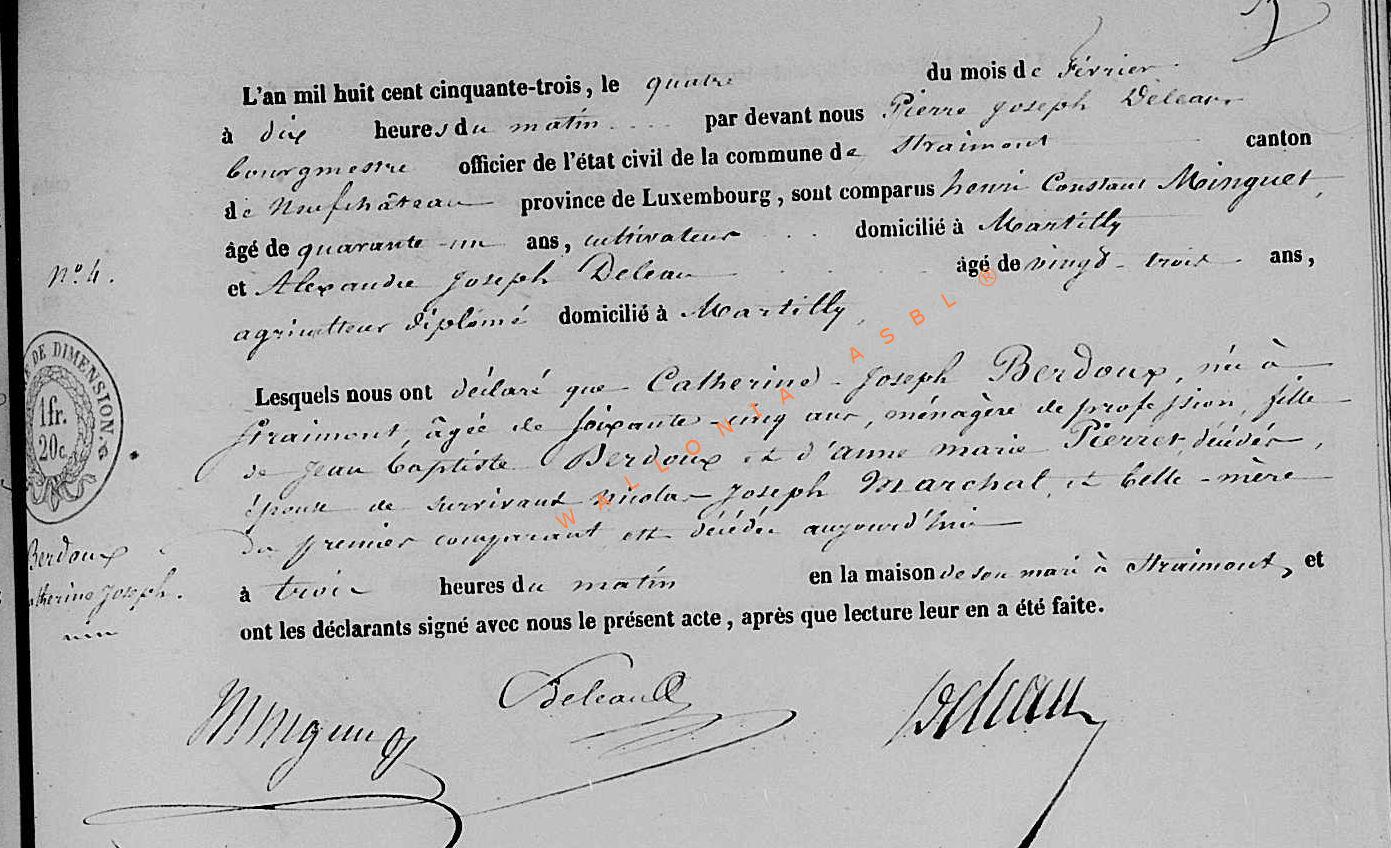 L'an mil huit cent cinquante-trois, le quatre du mois de Février
à dix heures du matin par devant nous Pierre Joseph Deleau
bourgmestre officier de l'état civil de la commune de Straimont canton
de Neufchâteau province de Luxembourg, sont comparus henri Constant Minguet,
âgé de quarante-un ans, cultivateur domicilié à Martilly
et Alexandre Joseph Deleau âgé de vingt-trois ans,
agriculteur diplômé domicilié à Martilly,
Lesquels nous ont déclaré que Catherine-Joseph Berdoux, née à
Straimont, âgée de soixante-cinq ans, ménagère de profession, fille
de Jean baptiste Berdoux et d'anne marie Pierret, décédés,
épouse de survivant Nicolas-Joseph Marchal, et belle-mère
du premier comparant est décédée aujourd'hui
à trois heures du matin en la maison de son mari à Straimont, et
ont les déclarants signé avec nous le présent acte, après que lecture leur en a été faite.
No. 4.
DE DIMENSION.
1fr.
20c.
Berdoux
Catherine Joseph.
Minguet Deleau Deleau
WALLONIA ASBL ®